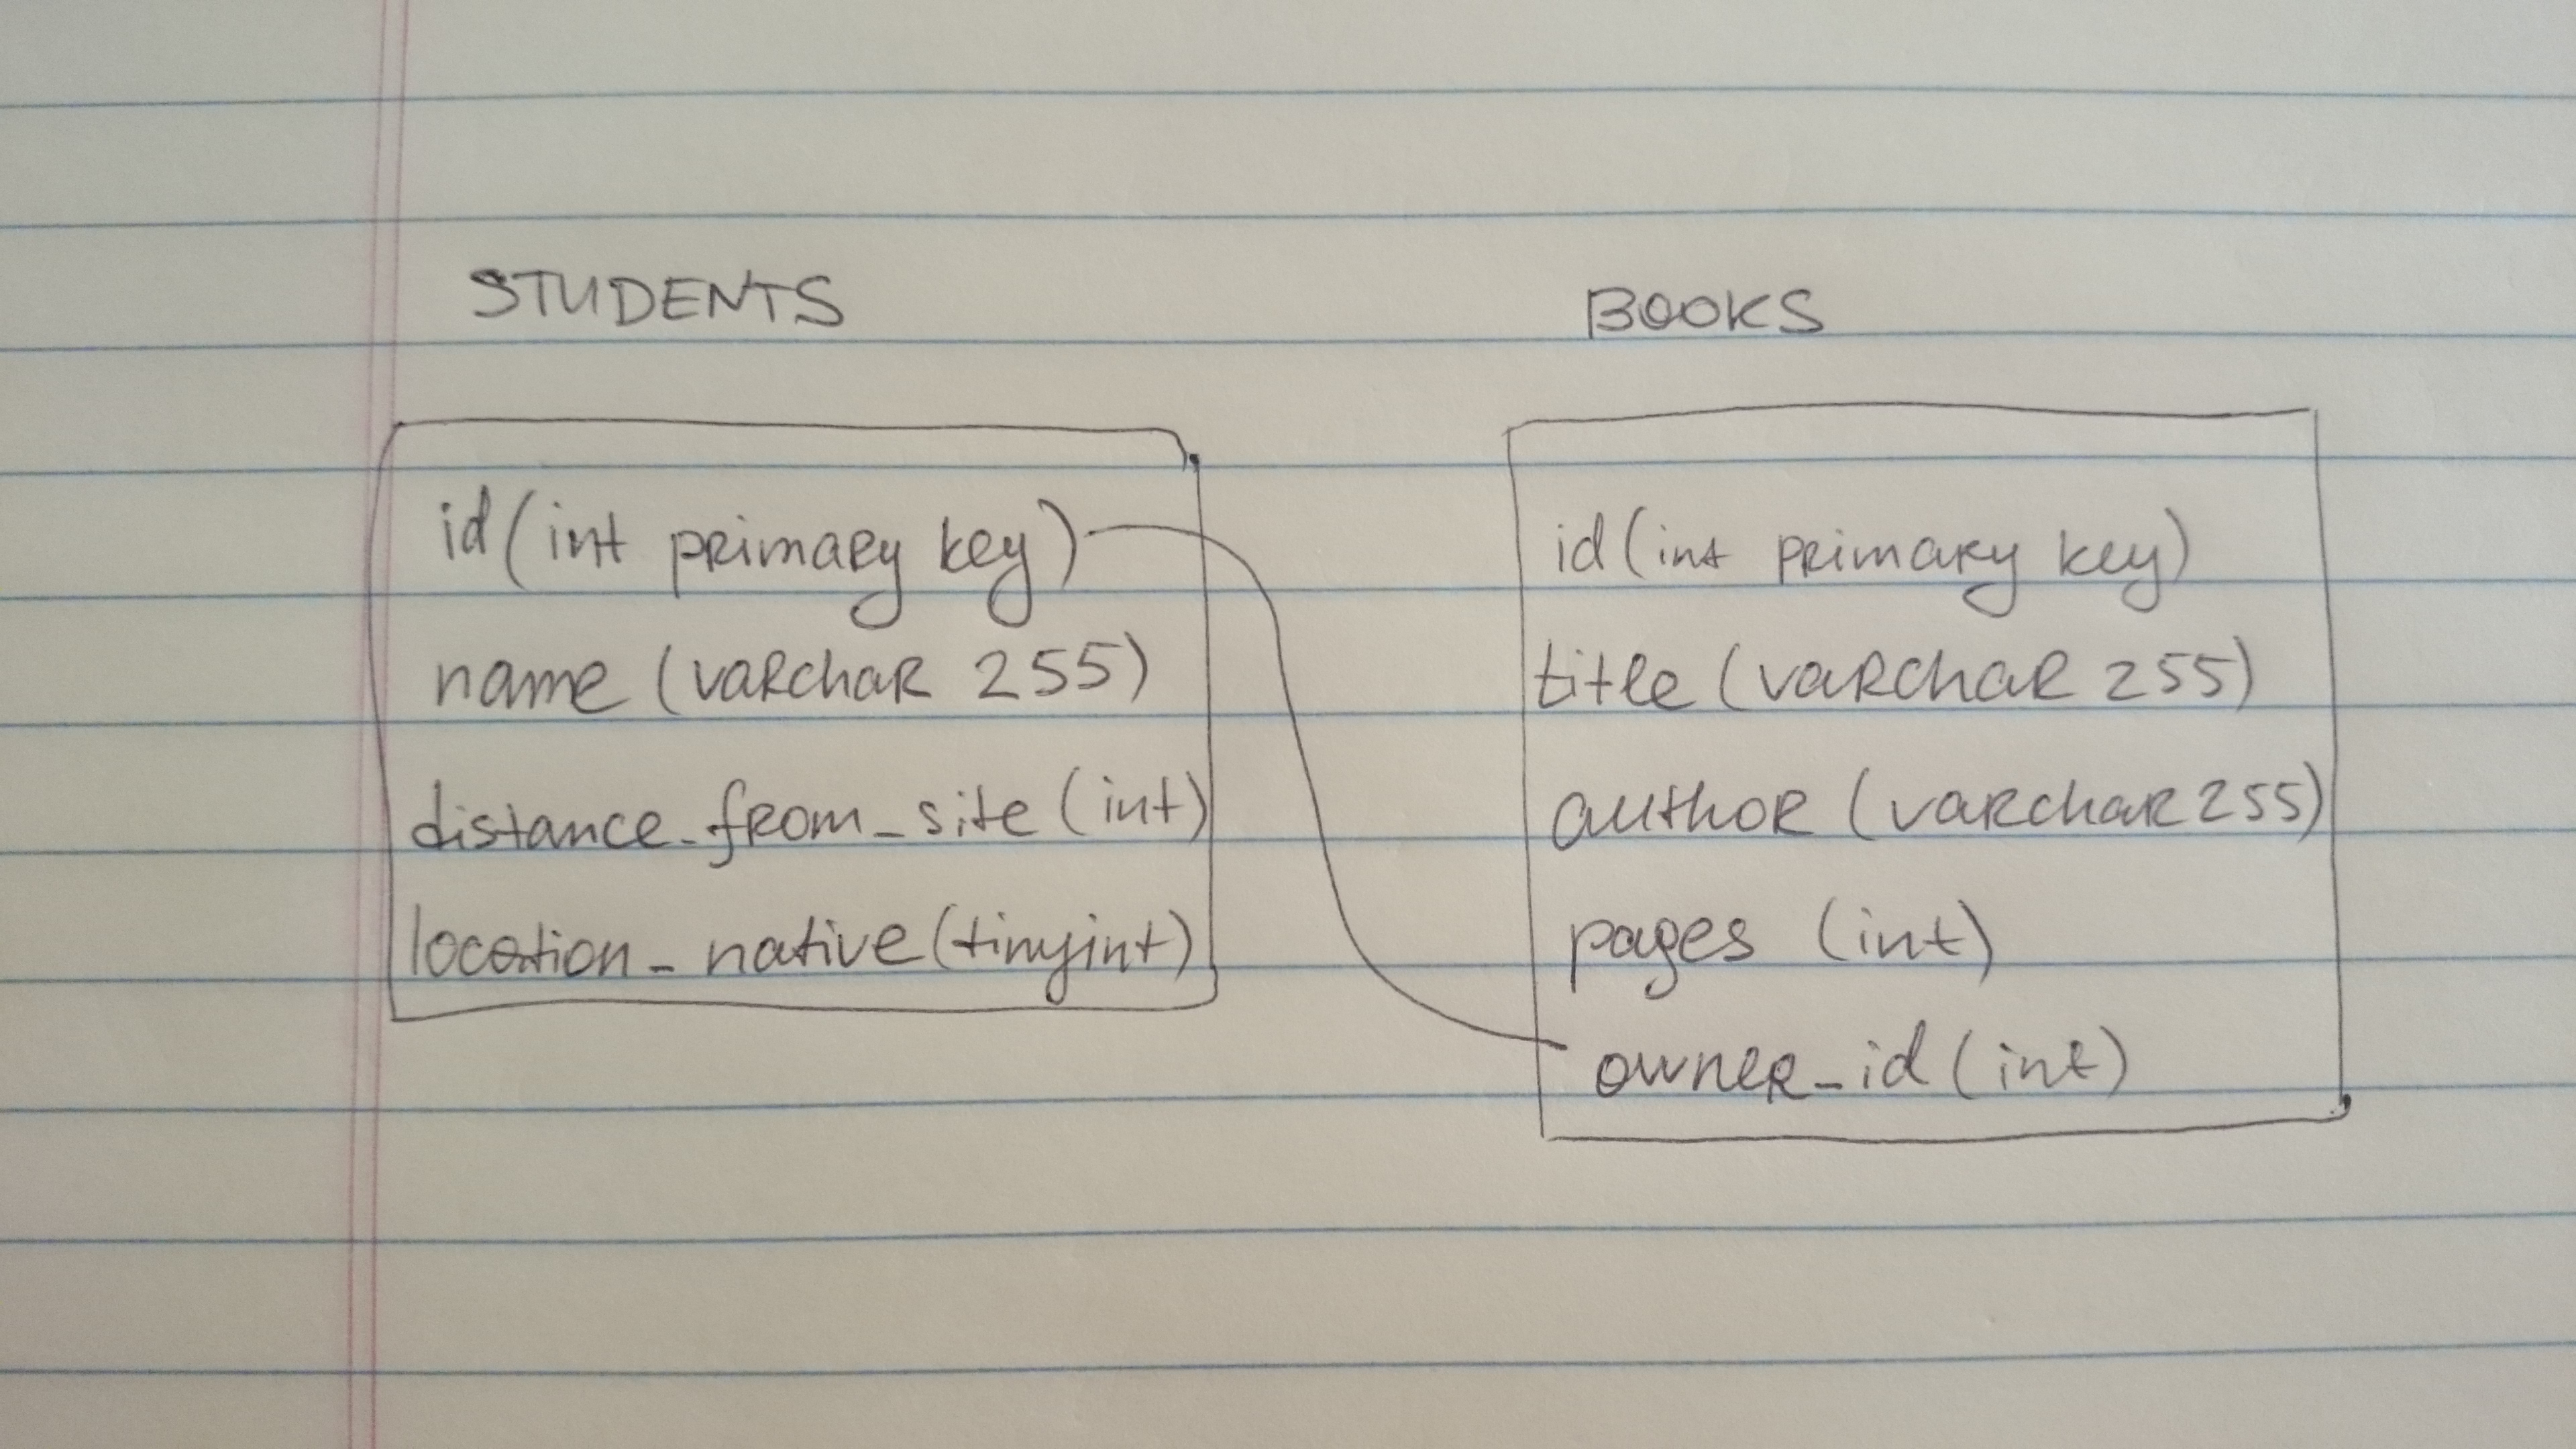 STUDENTS
id (int primary key)
name (varchar 255)
distance_from_site (int)
location_native (tinyint)
BOOKS
id (int primary key)
title (varchar 255)
author (varchar 255)
pages (int)
owner_id (int)